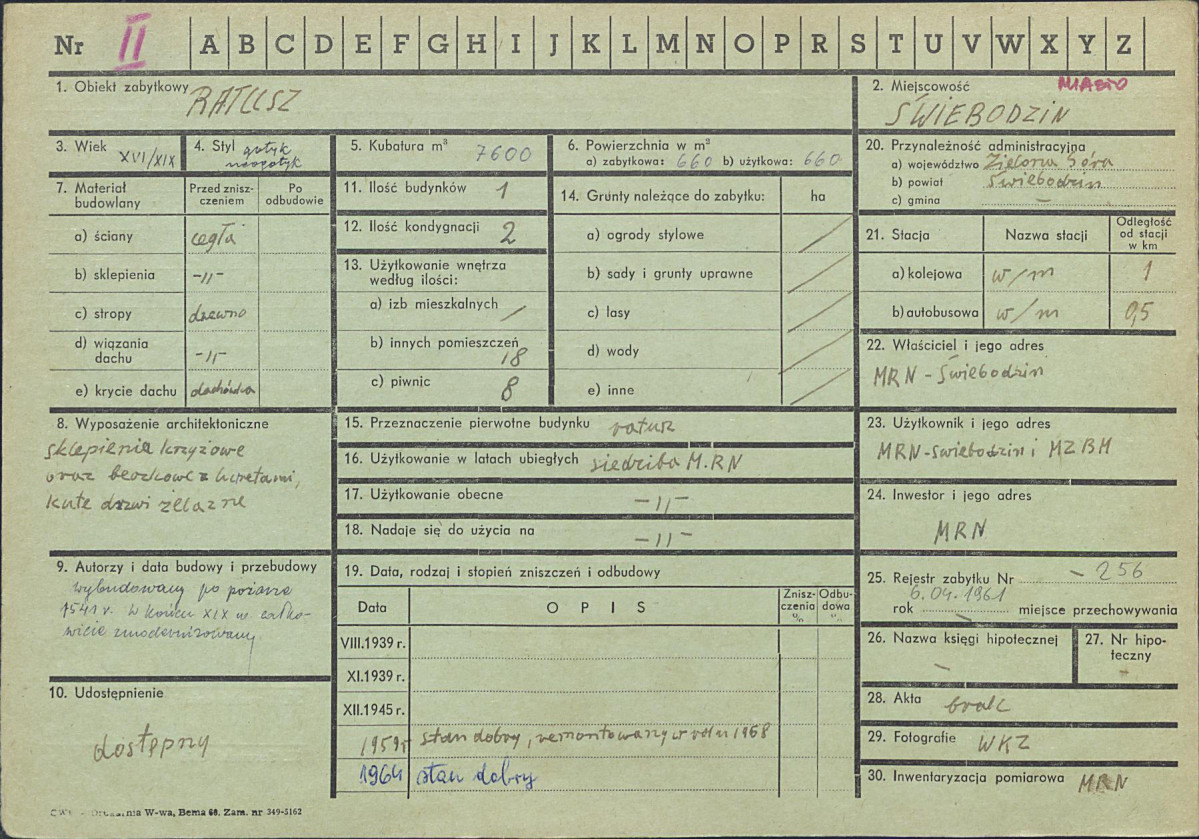 Nr II A B C D E F G H I J K L M N O P R S T U V W X Y Z
1. Obiekt zabytkowy RATUSZ
2. Miejscowość MIASTO
ŚWIEBODZIN
3. Wiek XVI/XIX
4. Styl gotyk
neogotyk
5. Kubatura m³ 7600
6. Powierzchnia w m²
a) zabytkowa: 660 b) użytkowa: 660
20. Przynależność administracyjna
a) województwo Zielona Góra
b) powiat Świebodzin
c) gmina —
7. Materiał budowlany
Przed zniszczeniem
Po odbudowie
a) ściany cegła
b) sklepienia -„-
c) stropy drewno
d) wiązania dachu -„-
e) krycie dachu dachówka
11. Ilość budynków 1
12. Ilość kondygnacji 2
13. Użytkowanie wnętrza
według ilości:
a) izb mieszkalnych /
b) innych pomieszczeń 18
c) piwnic 8
14. Grunty należące do zabytku: ha
a) ogrody stylowe /
b) sady i grunty uprawne /
c) lasy /
d) wody /
e) inne /
21. Stacja Nazwa stacji Odległość od stacji w km
a) kolejowa w/m 1
b) autobusowa w/m 0,5
22. Właściciel i jego adres
MRN - Świebodzin
8. Wyposażenie architektoniczne
sklepienia krzyżowe
oraz beczkowe z lunetami,
kute drzwi żelazne
15. Przeznaczenie pierwotne budynku ratusz
16. Użytkowanie w latach ubiegłych siedziba M.RN
17. Użytkowanie obecne -„-
18. Nadaje się do użycia na -„-
23. Użytkownik i jego adres
MRN-Świebodzin i MZBM
24. Inwestor i jego adres
MRN
9. Autorzy i data budowy i przebudowy
wybudowany po pożarze
1541 r. w końcu XIX w. całko-
wicie zmodernizowany
10. Udostępnienie
dostępny
19. Data, rodzaj i stopień zniszczeń i odbudowy
Data OPIS Zniszczenia % Odbudowa %
VIII.1939 r.
XI.1939 r.
XII.1945 r.
1959r stan dobry, remontowany w roku 1958
1964 stan dobry
25. Rejestr zabytku Nr - 256
6.04.1961
rok — miejsce przechowywania
26. Nazwa księgi hipotecznej
—
27. Nr hipo-
teczny
—
28. Akta brak
29. Fotografie WKZ
30. Inwentaryzacja pomiarowa MRN
W-wa, Bema 60. Zam. nr 349-5162